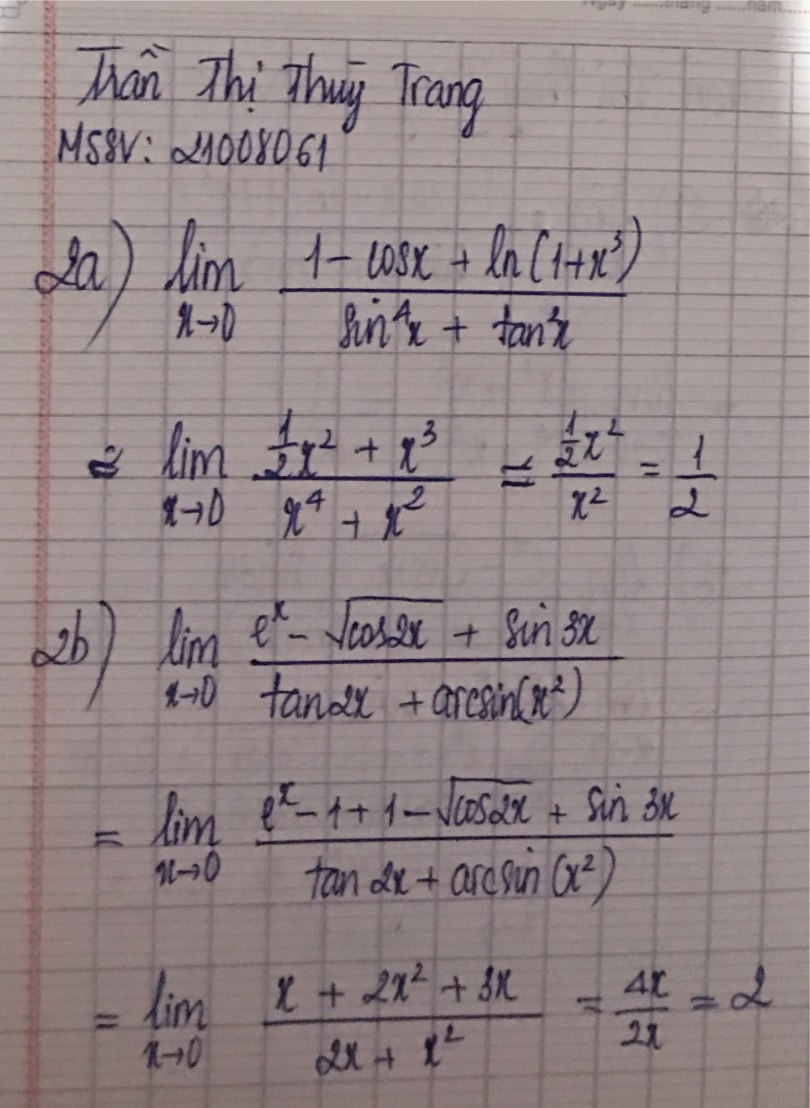 Ngày ......tháng ......năm......
Trần Thị Thuỳ Trang
MSSV: 21008061
2a) lim x→0 (1 - cosx + ln(1+x³)) / (sin⁴x + tan²x)
= lim x→0 (½x² + x³) / (x⁴ + x²) = ½x² / x² = 1/2
2b) lim x→0 (eˣ - √cos2x + sin 3x) / (tan2x + arcsin(x²))
= lim x→0 (eˣ - 1 + 1 - √cos2x + sin 3x) / (tan 2x + arcsin (x²))
= lim x→0 (x + 2x² + 3x) / (2x + x²) = 4x / 2x = 2